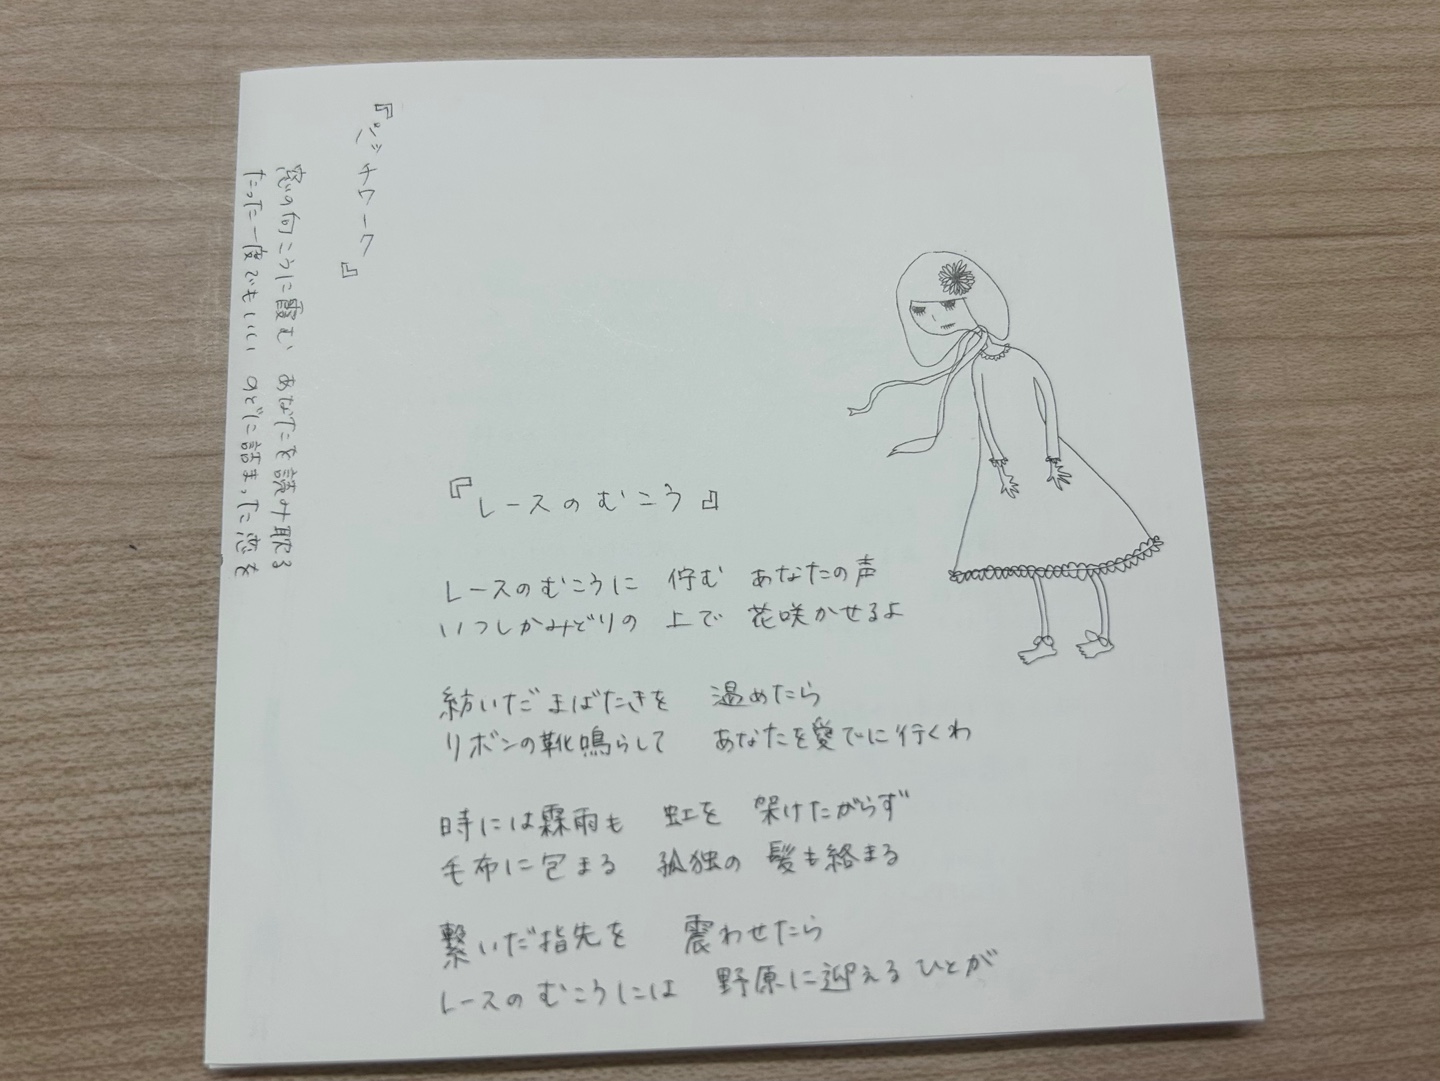 『パッチワーク』
窓の向こうに霞む あなたを読み耽る
たった一度でもいい のどに詰まった恋を
『レースのむこう』
レースのむこうに 佇む あなたの声
いつしかみどりの 上で 花咲かせるよ
紡いだまばたきを 温めたら
リボンの靴鳴らして あなたを愛でに行くわ
時には霖雨も 虹を 架けたがらず
毛布に包まる 孤独の 髪も絡まる
繋いだ指先を 震わせたら
レースのむこうには 野原に迎えるひとが